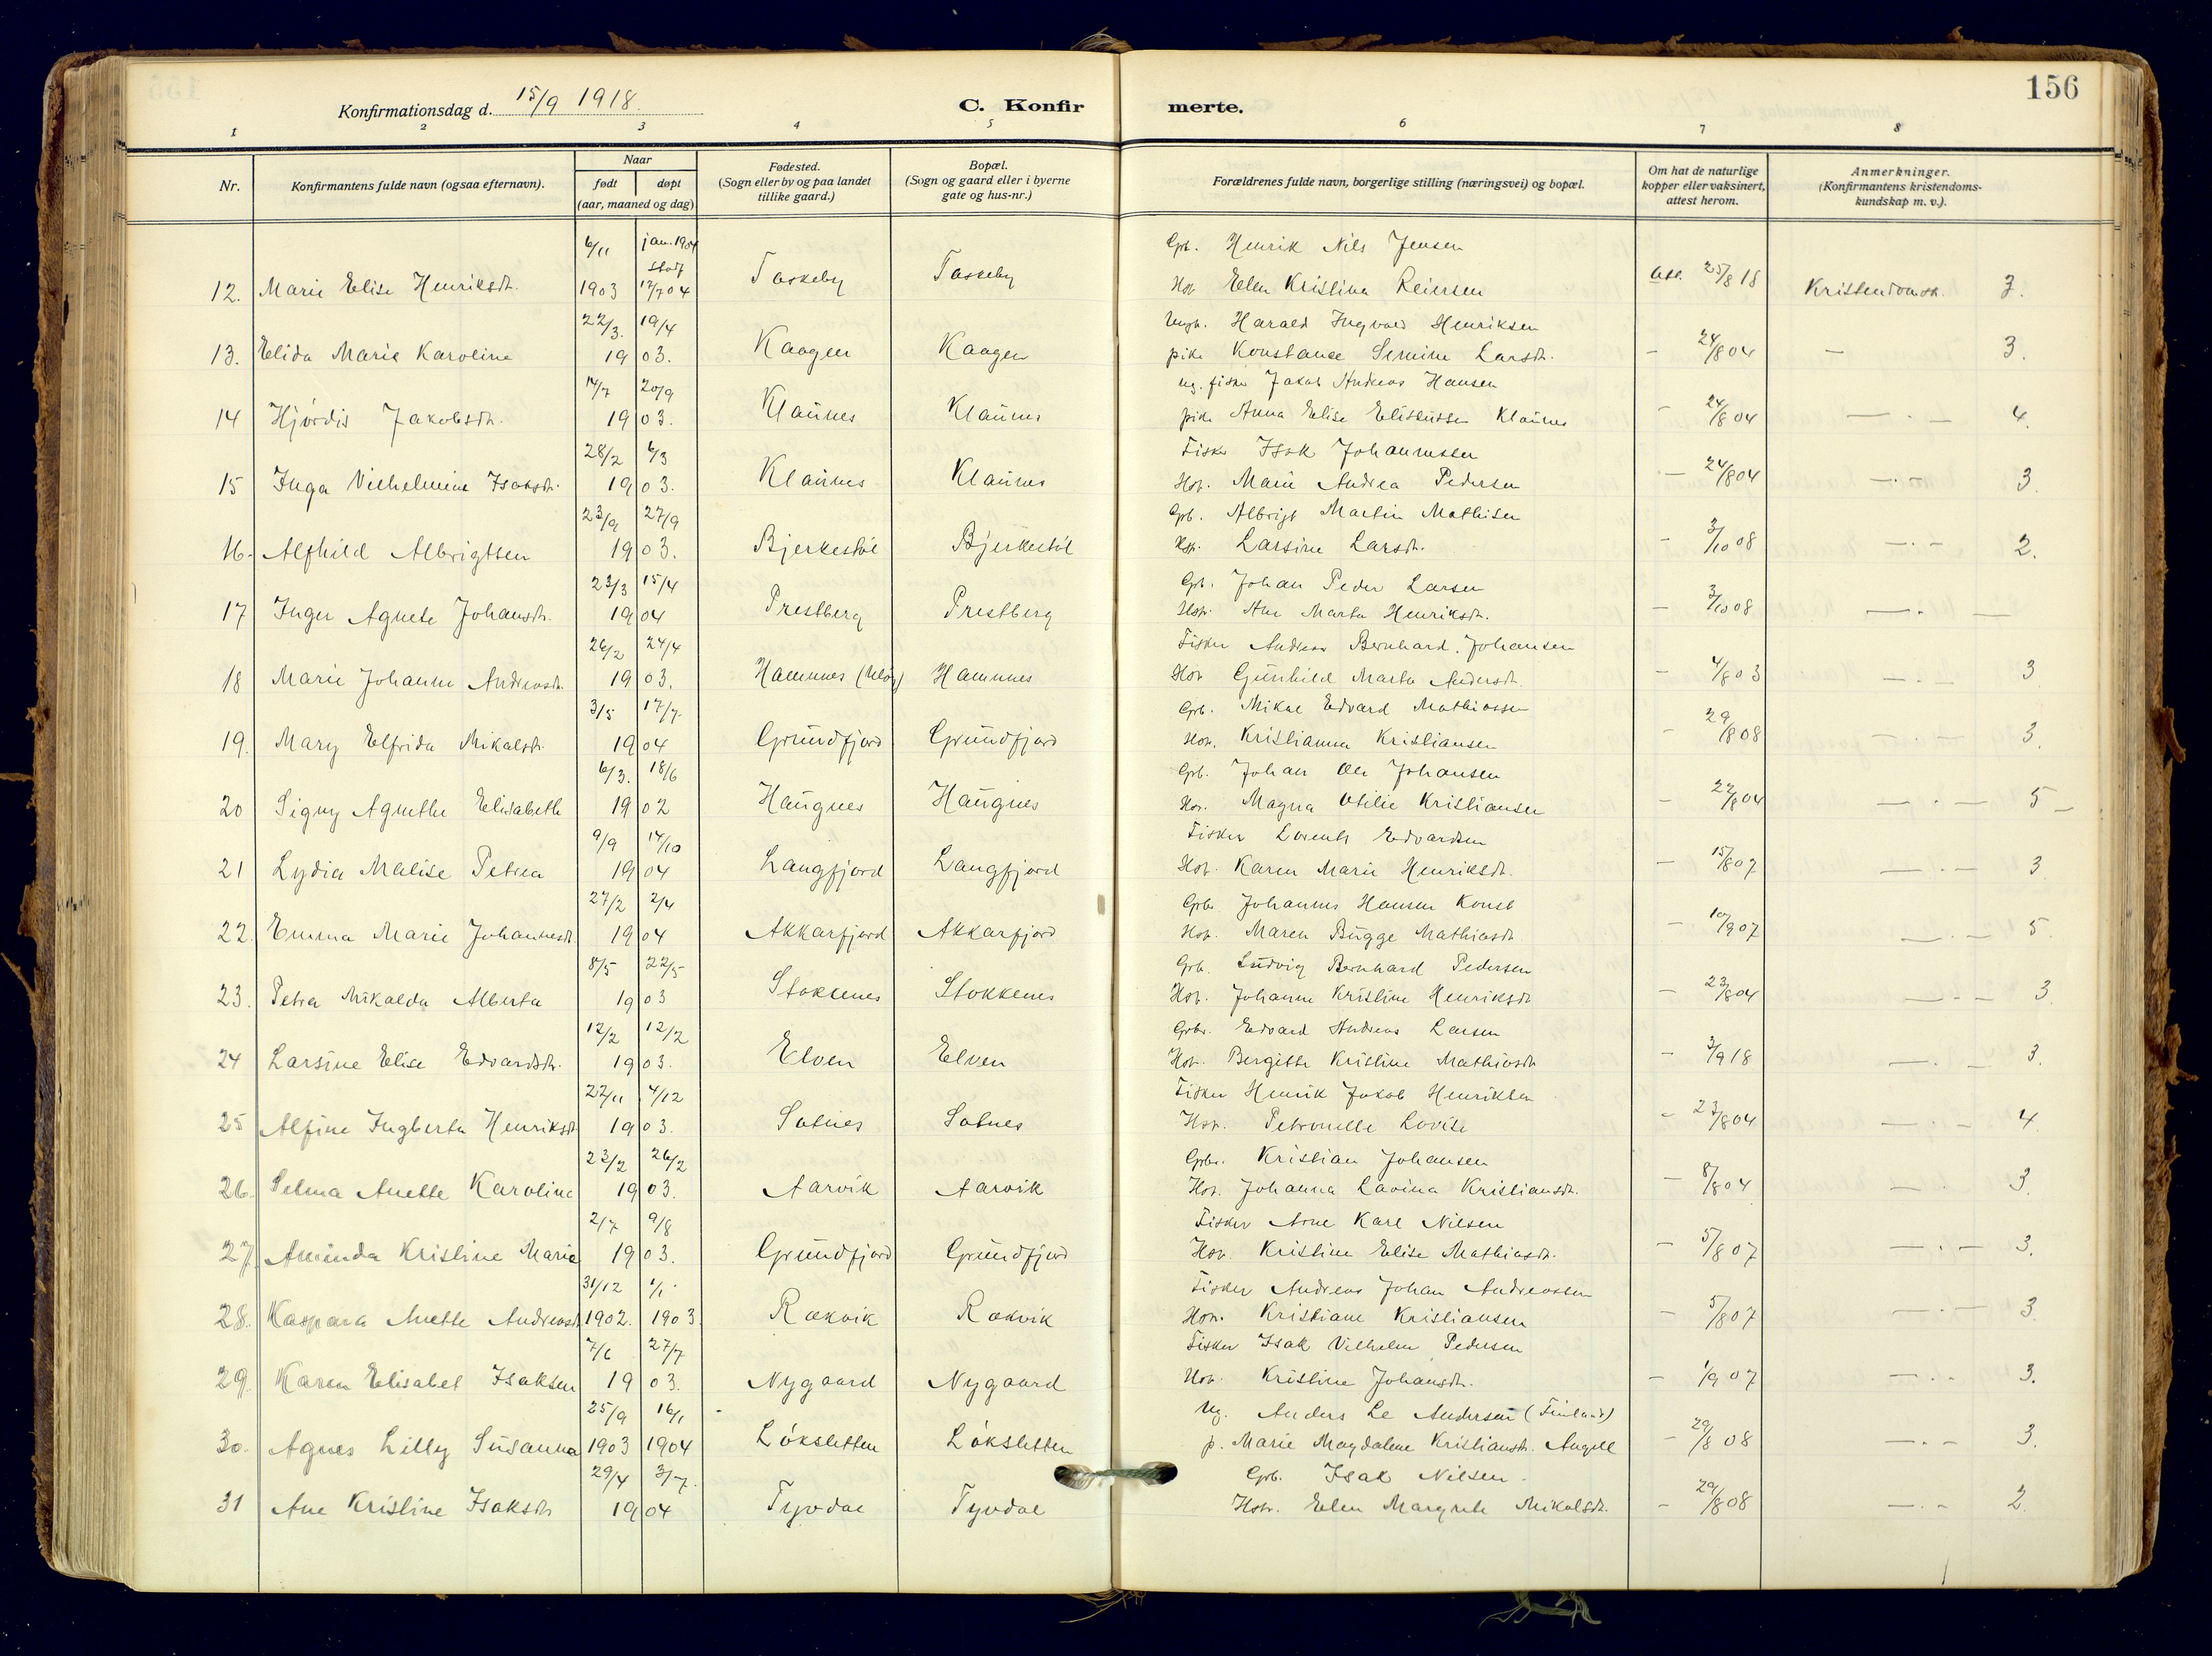 156
Konfirmationsdag d. 15/9 1918.
C. Konfirmerte.
1 2 3 4 5 6 7 8
Nr.
Konfirmantens fulde navn (ogsaa efternavn).
Naar
født døpt
(aar, maaned og dag)
Fødested.
(Sogn eller by og paa landet
tillike gaard.)
Bopæl.
(Sogn og gaard eller i byerne
gate og hus-nr.)
Forældrenes fulde navn, borgerlige stilling (næringsvei) og bopæl.
Om hat de naturlige
kopper eller vaksinert,
attest herom.
Anmerkninger.
(Konfirmantens kristendoms-
kundskap m. v.).
6/11 jan. 1904 Gb. Henrik Nils Jensen
12. Marie Elise Henriksdt. 1903 17/7 04 Taskeby Taskeby Hos. Elen Kristina Reiersen 25/8 18 3.
22/3. 19/4 Ungk. Harald Ingvald Henriksen
13. Elida Marie Karoline 1903. Kaagen Kaagen pike Konstance Larsdt. - 24/8 04 - 3.
14/7 20/9 ug. fisker Jakob Andreas Hansen
14 Hjørdis Jakobsdt. 1903. Klaunes Klaunes pike Anna Elise Klaunes - 24/8 04 - . - 4.
28/2 6/3 Fisker Isak Johannessen
15 Inga Vilhelmine Isaksdt. 1903. Klaunes Klaunes Hos. Marie Andrea Pedersen - 24/8 04 - . - 3.
23/9 27/9 Gb. Albrigt Martin Mathisen
16. Alfhild Albrigtsen 1903. Bjerkestøl Bjerkestøl Hos. Larsine Larsdt. - 3/10 08 - . - 2.
23/3 15/4 Gb. Johan Peder Larsen
17 Inger Agnete Johansdt. 1904 Prestberg Prestberg Hos. Ane Marta Henriksdt. - 3/10 08 - . - -
26/2 24/4 Fisker Andreas Bernhard Johansen
18 Marie Johanne Andreasdt. 1903. Hamnes Hamnes Hos. Gunhild Marta Andersdt. - 4/8 03 - . - 3
3/5 17/7. Gb. Mikal Edvard Mathiassen
19. Mary Elfrida Mikalsdt. 1904 Grundfjord Grundfjord Hos. Kristianna Kristiansen - 29/8 08 - . - 3.
6/3. 18/6 Gb. Johan Ole Johansen
20 Signy Agnethe Elisabeth 1902 Haugnes Haugnes Hos. Magna Otilie Kristiansen - 22/8 04 - . - 5 -
9/9 14/10 Fisker Lorents Edvardsen
21 Lydia Malise Petrea 1904 Langfjord Langfjord Hos. Karen Marie Henriksdt. - 15/8 07 - . - 3
27/2 2/4 Gbr. Johannes Hansen Konst
22. Emma Marie Johannesdt. 1904 Akkarfjord Akkarfjord Hos. Maren Bugge Mathiasdt - 10/9 07 - . - 5.
8/5 22/5 Grb. Ludvig Bernhard Pedersen
23. Petra Mikalda Alberta 1903 Stokkenes Stokkenes Hos. Johanne Kristine Henriksdt - 23/8 04 - . - 3.
12/2 12/2 Gbr. Edvard Andreas Larsen
24 Larsine Elise Edvardsdt. 1903. Elven Elven Hos. Bergitte Kristine Mathiasdt - 3/9 18 - . - 3.
22/11 4/12 Fisker Henrik Jakob Henriksen
25 Alfine Ingberta Henriksdt 1903. Satnes Satnes Hos. Petronelle Lovise - 23/8 04 - . - 4.
23/2 26/2 Gbr. Kristian Johansen
26. Selma Anette Karoline 1903. Aarvik Aarvik Hos. Johanna Lavina Kristiansdt. - 8/8 04 - . 3.
2/7 9/8 Fisker Arne Karl Nilsen
27. Aminda Kristine Maria 1903. Grundfjord Grundfjord Hos. Kristine Elise Mathiasdt. - 5/8 07 - . - 3.
31/12 1/1 Fisker Andreas Johan Andreassen
28. Kaspara Anette Andreasdt 1902. 1903. Rakvik Rakvik Hos. Kristiane Kristiansen - 5/8 07 - . - 3.
7/6 27/7 Fisker Isak Vilhelm Pedersen
29. Karen Elisabet Isaksen 1903. Nygaard Nygaard Hos. Kristine Johansdt. - 1/9 07 - . . 3.
25/9 16/1 Ug. Anders Le Andersen (Finland)
30. Agnes Lilly Susanna 1903 1904 Løksletten Løksletten p. Marie Magdalene Kristiansdt. Angell - 29/8 08 - . - 3.
29/4 3/7. Gb. Isak Nilsen
31 Ane Kristine Isaksdt 1904 Tyvdal Tyvdal Hos. Elen Margrete Mikalsdt. - 29/8 08 - . - 2.